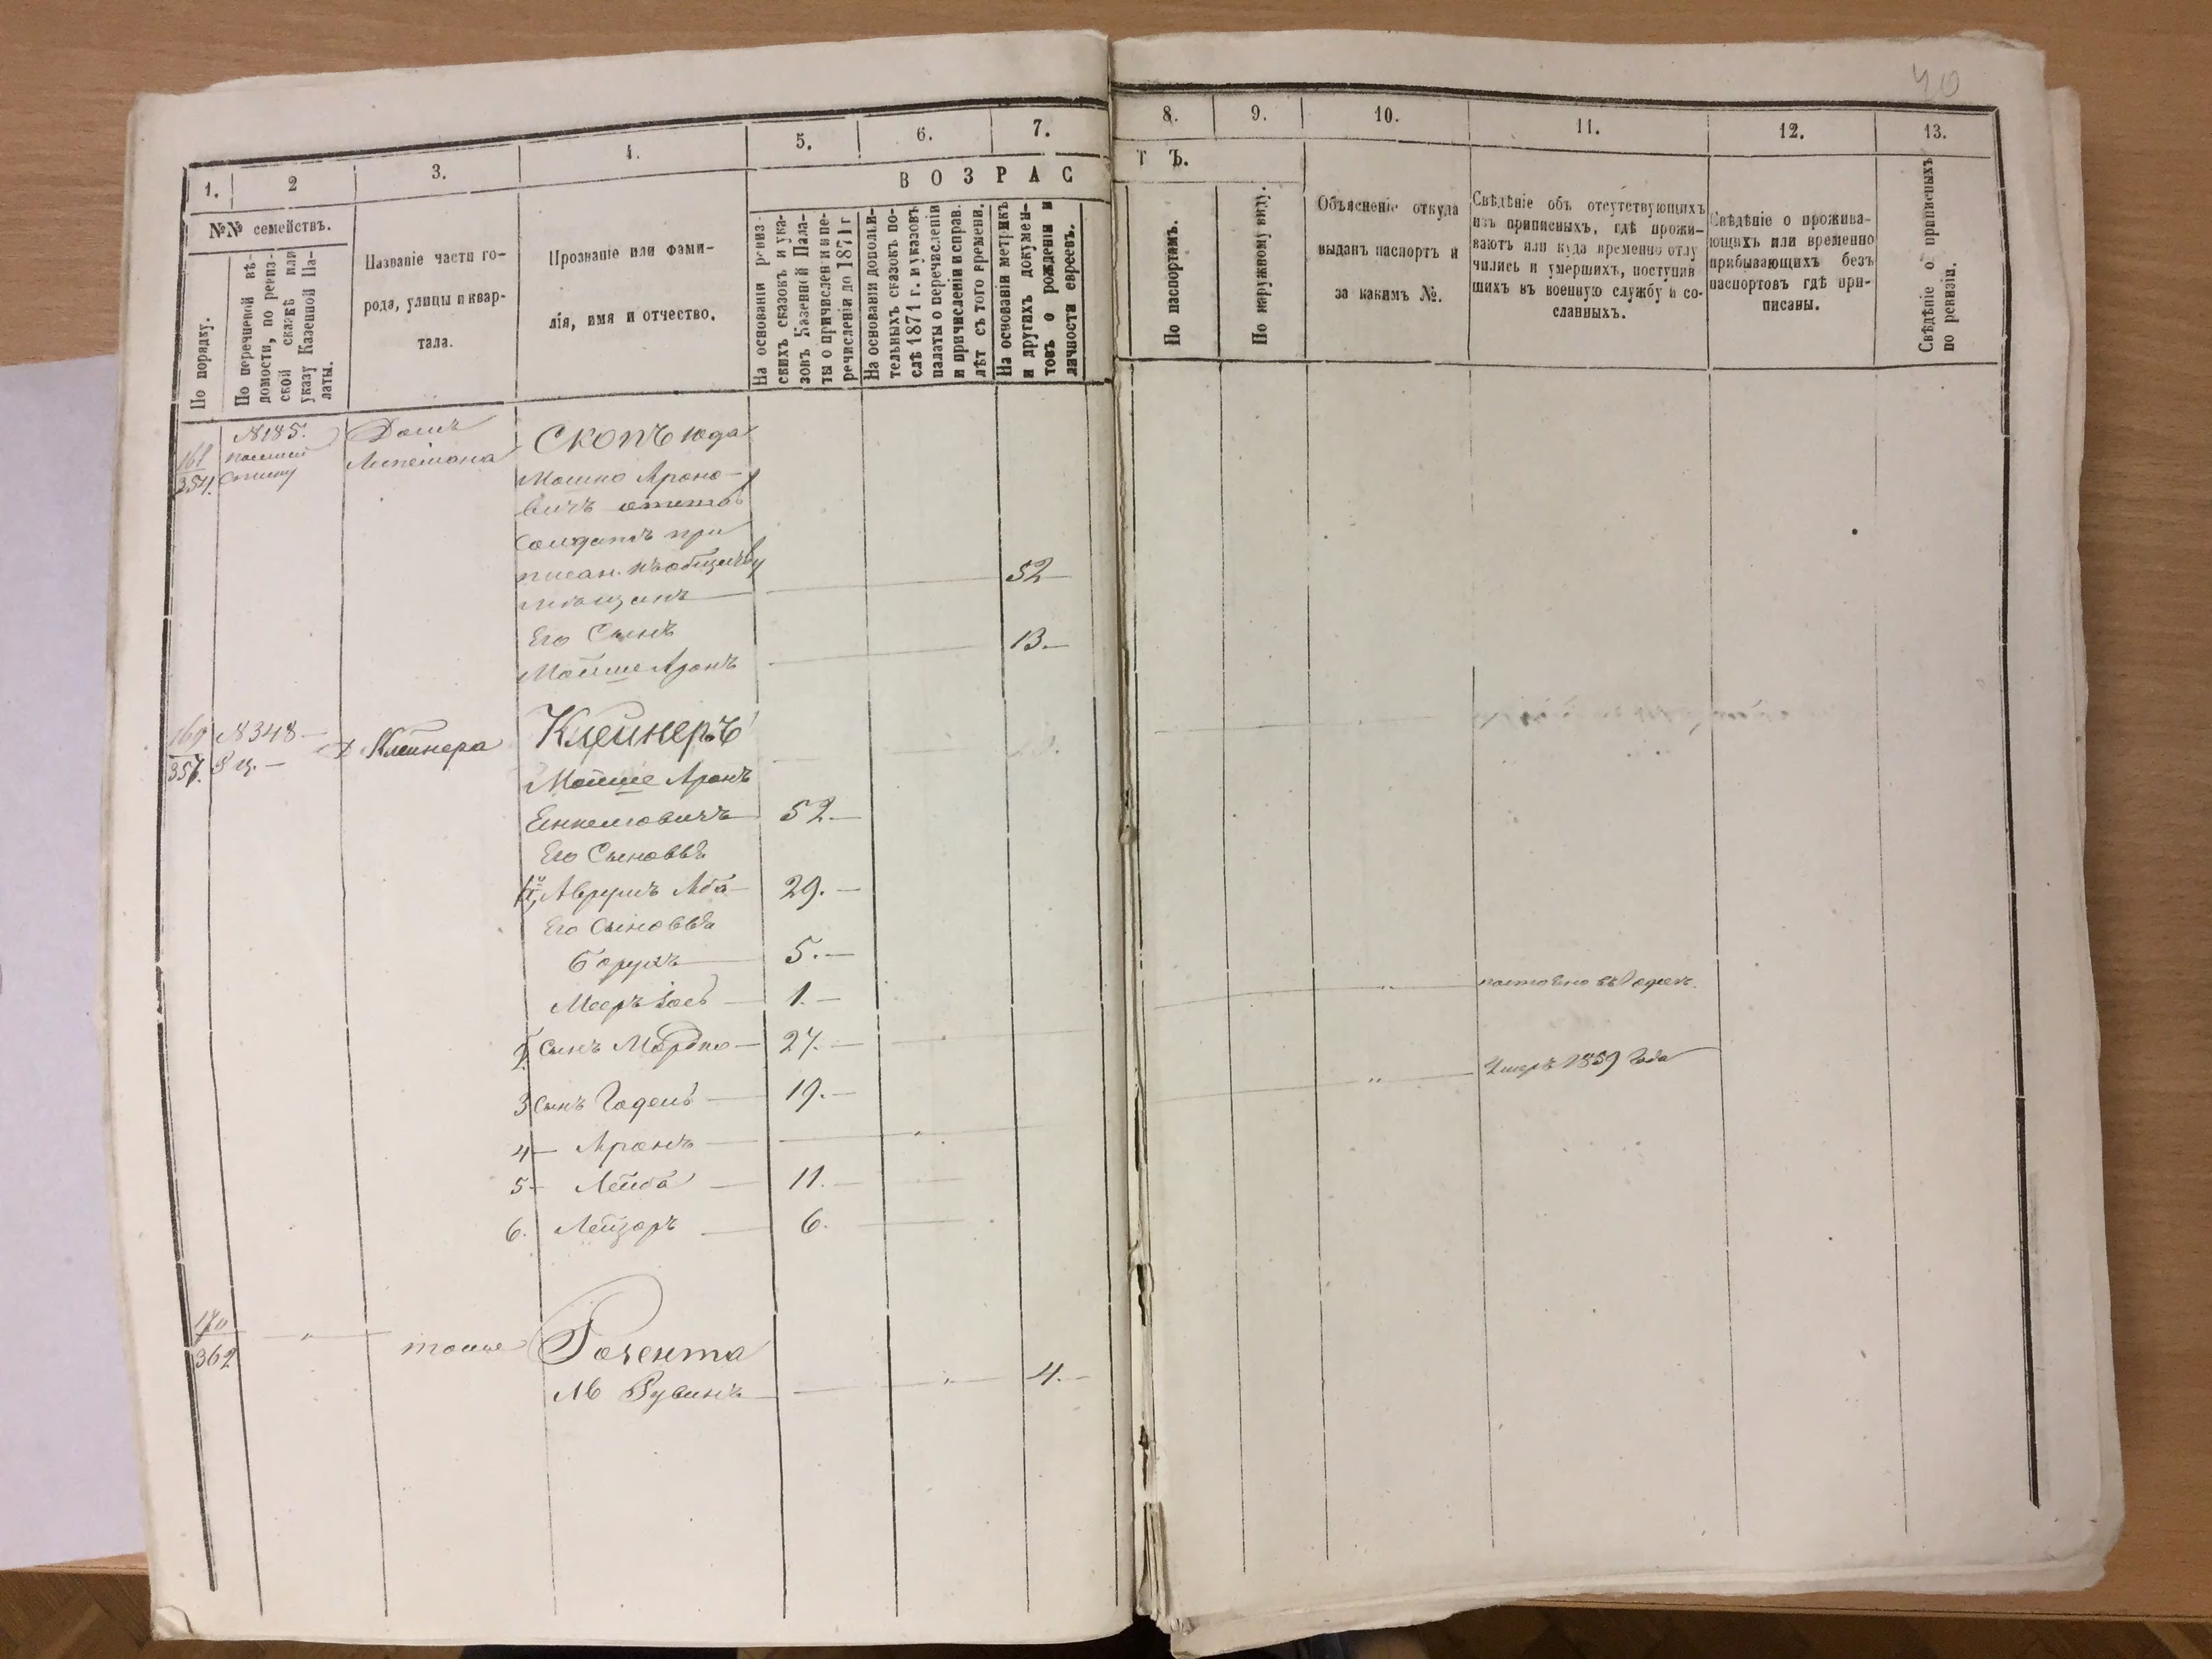 40
1.
2
3.
4.
5.
6.
7.
8.
9.
10.
11.
12.
13.
№№ семействъ.
По порядку.
По перечневой вѣ-
домости, по ревиз-
ской сказкѣ или
указу Казенной Па-
латы.
Названіе части го-
рода, улицы и квар-
тала.
Прозваніе или фами-
лія, имя и отчество.
ВОЗРАС
ТЪ.
На основаніи ревиз-
скихъ сказокъ и ука-
зовъ Казенной Пала-
ты о причисленіи и пе-
речисленіи до 1871 г
На основаніи дополни-
тельныхъ сказокъ по-
слѣ 1871 г. и указовъ
палаты о перечисленіи
и причисленіи и справ.
лѣт съ того времени.
На основаніи метрикъ
и другихъ докумен-
товъ о рожденіи и
личности евреевъ.
По паспортамъ.
По наружному виду.
Объясненіе откуда
выданъ паспортъ и
за какимъ №.
Свѣдѣніе объ отсутствующихъ
изъ приписныхъ, гдѣ прожи-
ваютъ или куда временно отлу
чились и умершихъ, поступив
шихъ въ военную службу и со-
сланныхъ.
Свѣдѣніе о прожива-
ющихъ или временно
прибывающихъ безъ
паспортовъ гдѣ при-
писаны.
Свѣдѣніе о приписныхъ
по ревизіи.
354.
№185.
Домъ
Скопъ юда
Мошко Ароно-
вичъ
Солдатъ при
писан.
мѣщанъ
52
Его Сынъ
Мойше Аронъ
13.
169
357.
№348
Д Клейнера
Клейнеръ
Мойше Аронъ
52.
Его Сыновья
1й Аврумъ Аба
29.
Его Сыновья
Борухъ
5.
Мееръ Іось
1.
2 Сынъ Мордко
27.
3 Сынъ Годель
19.
4 Аронъ
5 Лейба
11.
6. Лейзоръ
6.
въ Одессѣ.
Умеръ 1859 Года
170
362
тоже
Рубинъ
4.